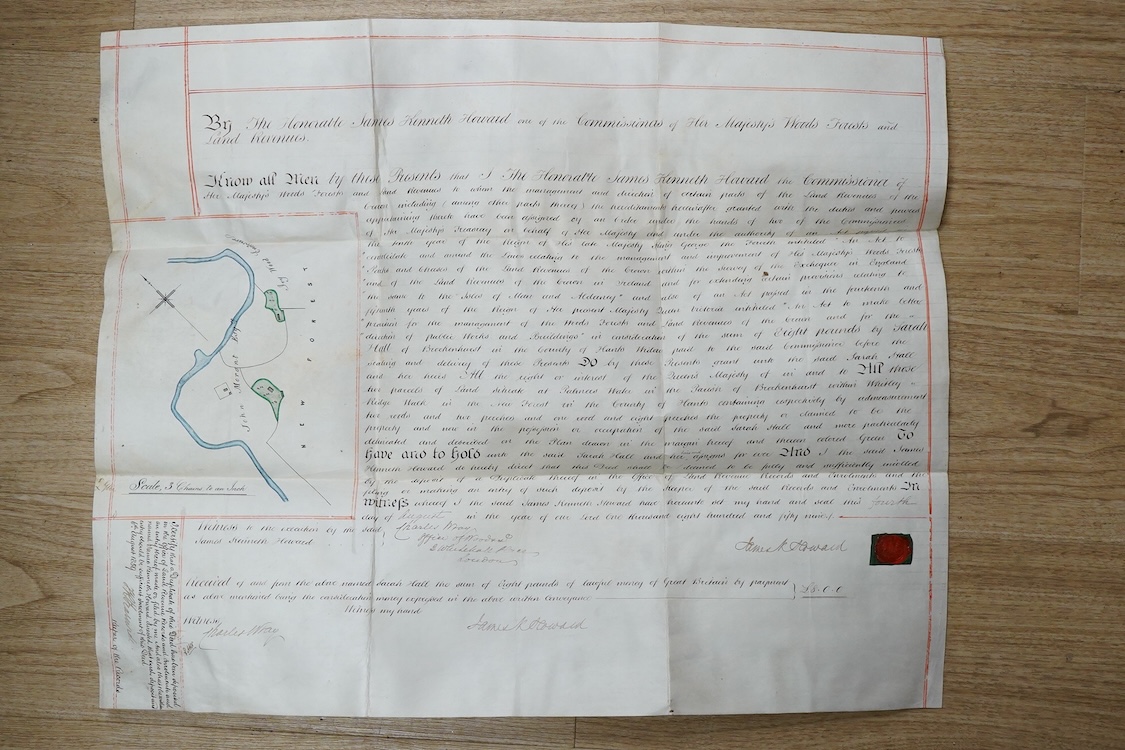 By The Honorable James Kenneth Howard one of the Commissioners of Her Majesty's Woods Forests and
Land Revenues.
Know all Men by these Presents that I The Honorable James Kenneth Howard the Commissioner of
Her Majesty's Woods Forests and Land Revenues to whom the management and direction of certain parts of the Land Revenues of the
Crown including (among other parts thereof) the hereditaments hereinafter granted with the duties and powers
appertaining thereto have been assigned by an Order under the hands of two of the Commissioners
of Her Majesty's Treasury on behalf of Her Majesty and under the authority of an Act
the tenth year of the Reign of His late Majesty King George the Fourth intituled "An Act to
"consolidate and amend the Laws relating to the management and improvement of His Majesty's Woods Forests
"Parks and Chases of the Land Revenues of the Crown within the Survey of the Exchequer in England
"and of the Land Revenues of the Crown in Ireland and for extending certain provisions relating to
"the same to the Isles of Man and Alderney" and also of an Act passed in the fourteenth and
fifteenth years of the Reign of Her present Majesty Queen Victoria intituled "An Act to make better
"provision for the management of the Woods Forests and Land Revenues of the Crown and for the
"direction of public Works and Buildings" in consideration of the sum of Eight pounds by Sarah
Hall of Brockenhurst in the County of Hants Widow paid to the said Commissioner before the
sealing and delivery of these Presents Do by these Presents grant unto the said Sarah Hall
and her heirs All the right or interest of the Queen's Majesty of in and to All those
two parcels of Land situate at Palmers Water in the Parish of Brockenhurst within Whitley
Ridge Walk in the New Forest in the County of Hants containing respectively by admeasurement
two roods and two perches and one rood and eight perches the property or claimed to be the
property and now in the possession or occupation of the said Sarah Hall and more particularly
delineated and described in the Plan drawn in the margin hereof and therein colored Green To
have and to hold unto the said Sarah Hall and her assigns for ever And I the said James
Kenneth Howard do hereby direct that this Deed shall be deemed to be fully and sufficiently enrolled
by the deposit of a Duplicate thereof in the Office of Land Revenue Records and Enrolments and the
filing or making an entry of such deposit by the Keeper of the said Records and Enrolments In
witness whereof I the said James Kenneth Howard have hereunto set my hand and seal this fourth
day of August in the year of our Lord One thousand eight hundred and fifty nine
John Mordant Esqr.
NEW FOREST
Scale, 3 Chains to an Inch
Witness to the execution by the said
James Kenneth Howard
Charles Wray
Office of Woods &c
Whitehall Place
London
James K Howard
Received of and from the above named Sarah Hall the sum of Eight pounds of lawful money of Great Britain by payment
as above mentioned being the consideration money expressed in the above written Conveyance
£8.0.0
Witness my hand
Witness
Charles Wray
James K Howard
I certify that a Duplicate of this Deed has been deposited
in the Office of Land Revenue Records and Enrolments and
August 1859
Keeper of the Records